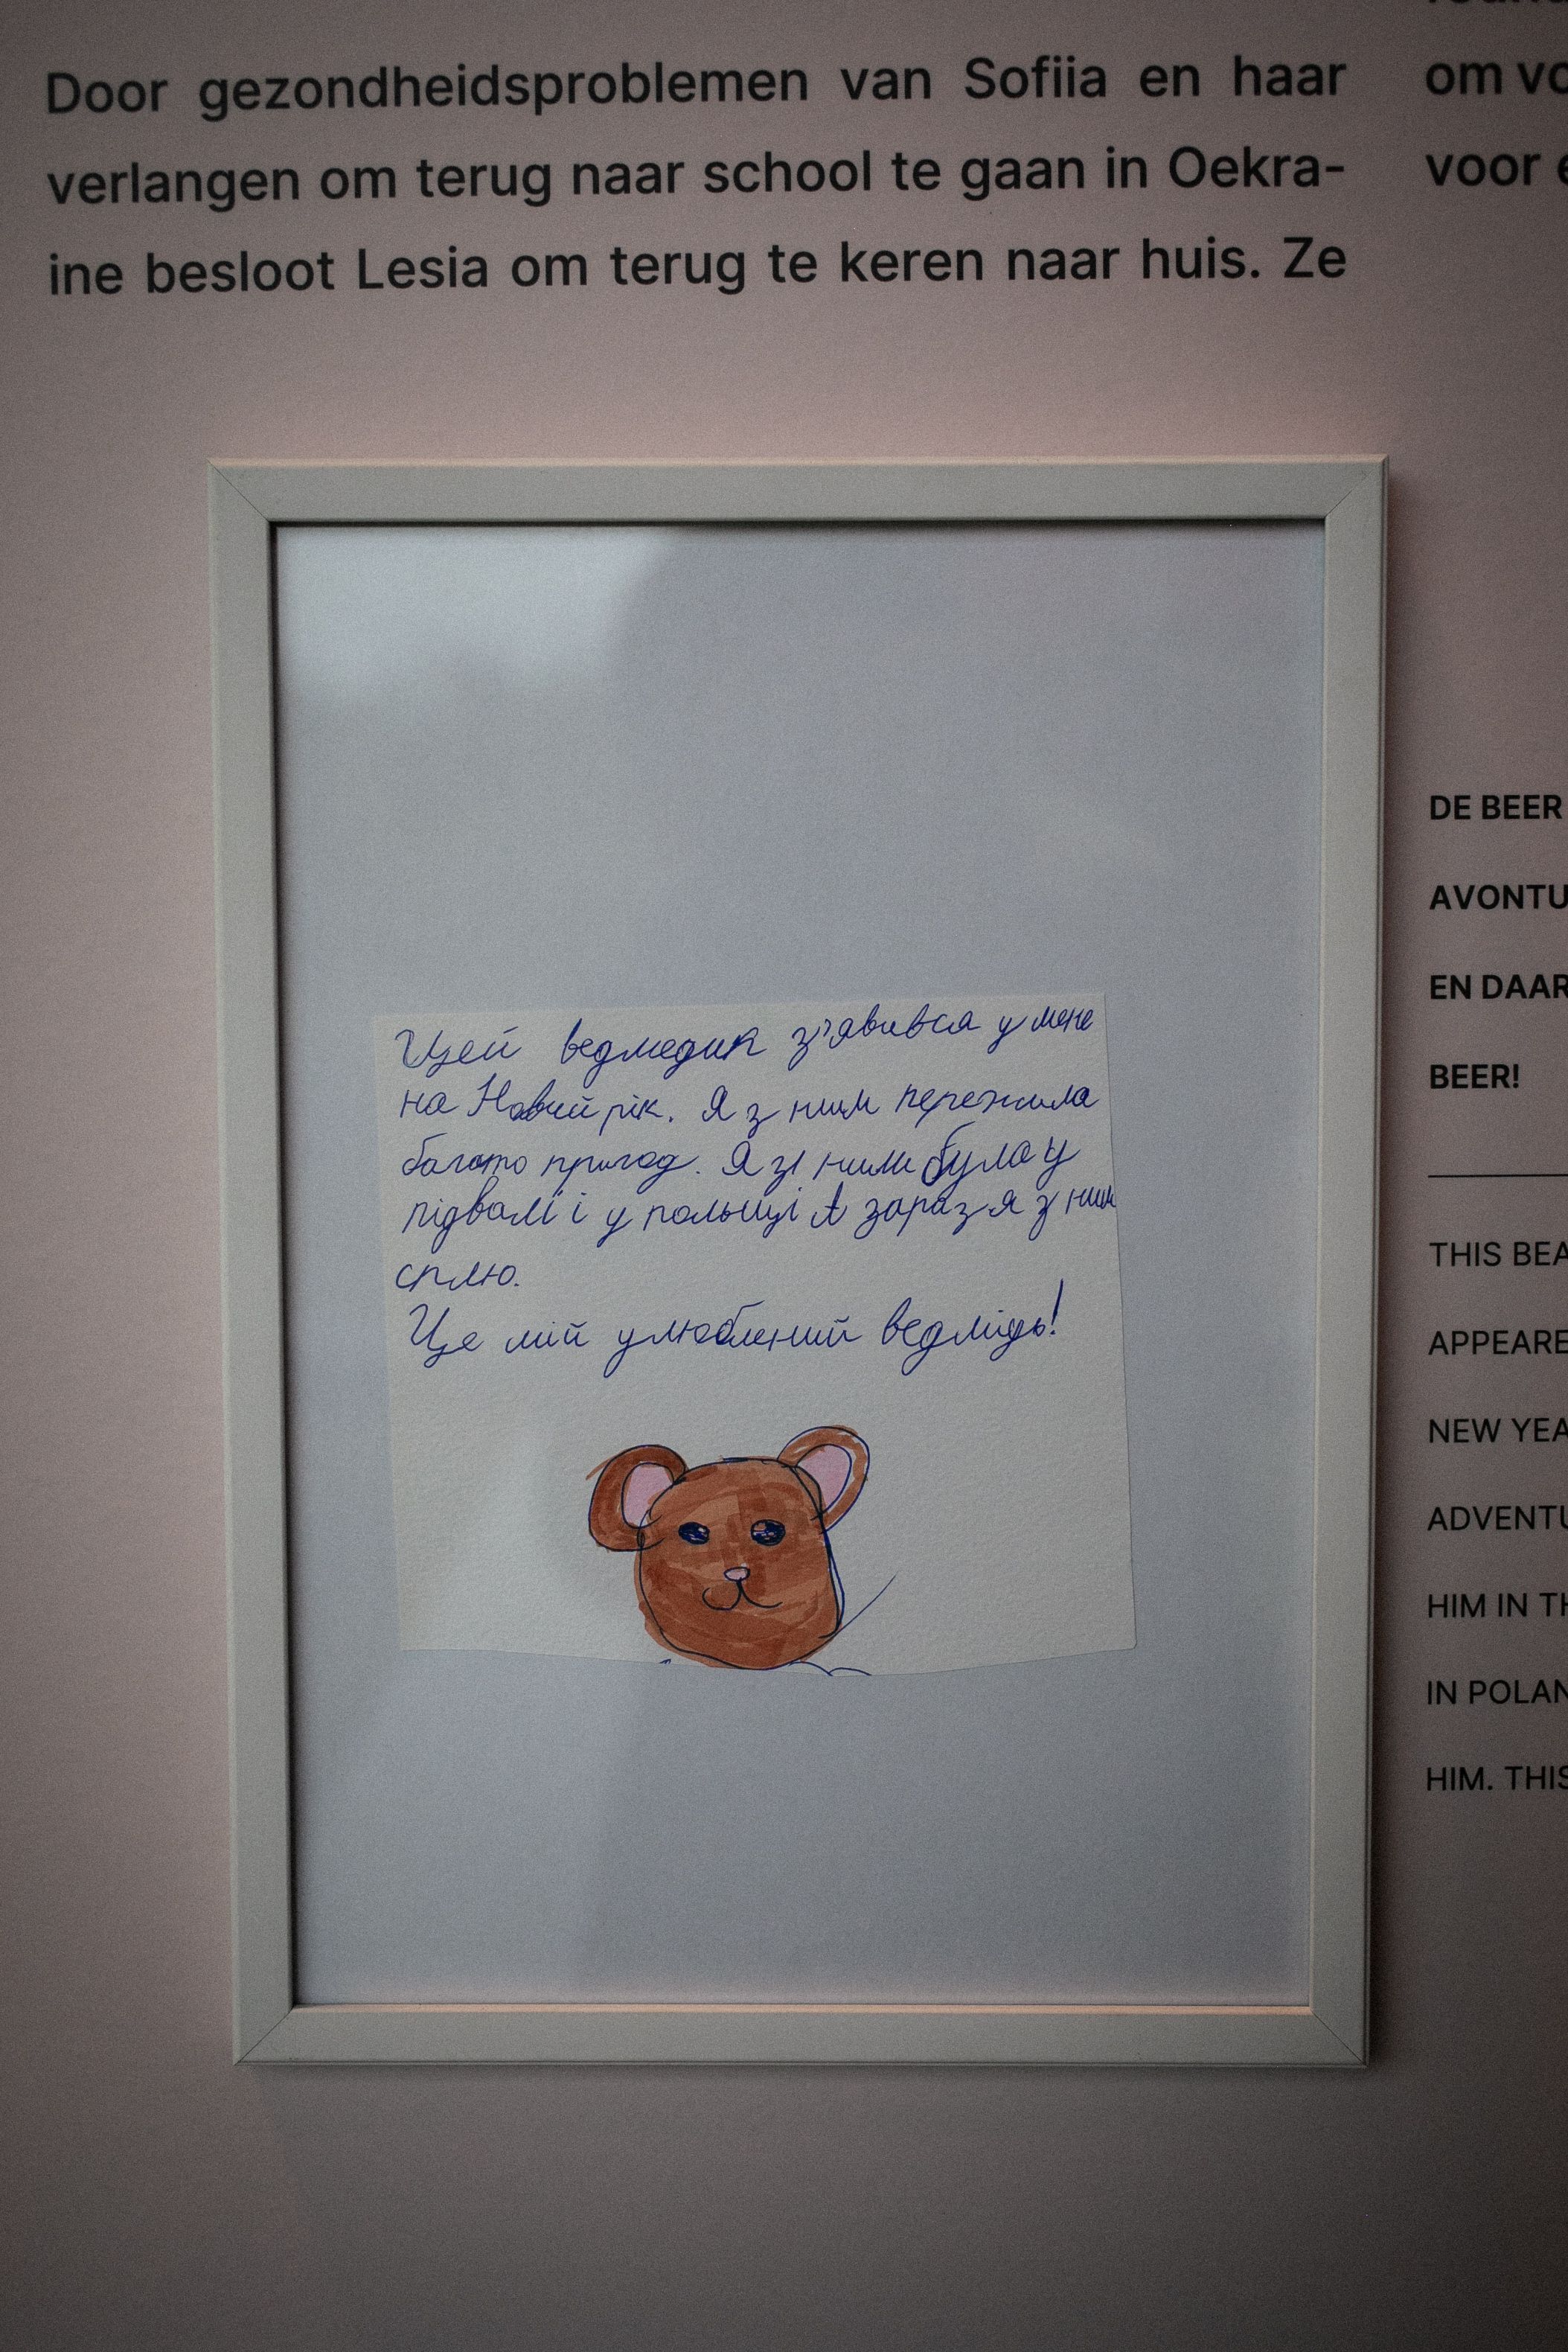 Door gezondheidsproblemen van Sofiia en haar
verlangen om terug naar school te gaan in Oekra-
ine besloot Lesia om terug te keren naar huis. Ze
om vo
voor e
Цей ведмедик з'явився у мене
на Новий рік. Я з ним пережила
багато пригод. Я зі ними була у
підвалі і у польщі А зараз я з ним
сплю.
Це мій улюблений ведмідь!
DE BEER
AVONTU
EN DAAR
BEER!
THIS BEA
APPEARE
NEW YEA
ADVENTU
HIM IN TH
IN POLAN
HIM. THIS